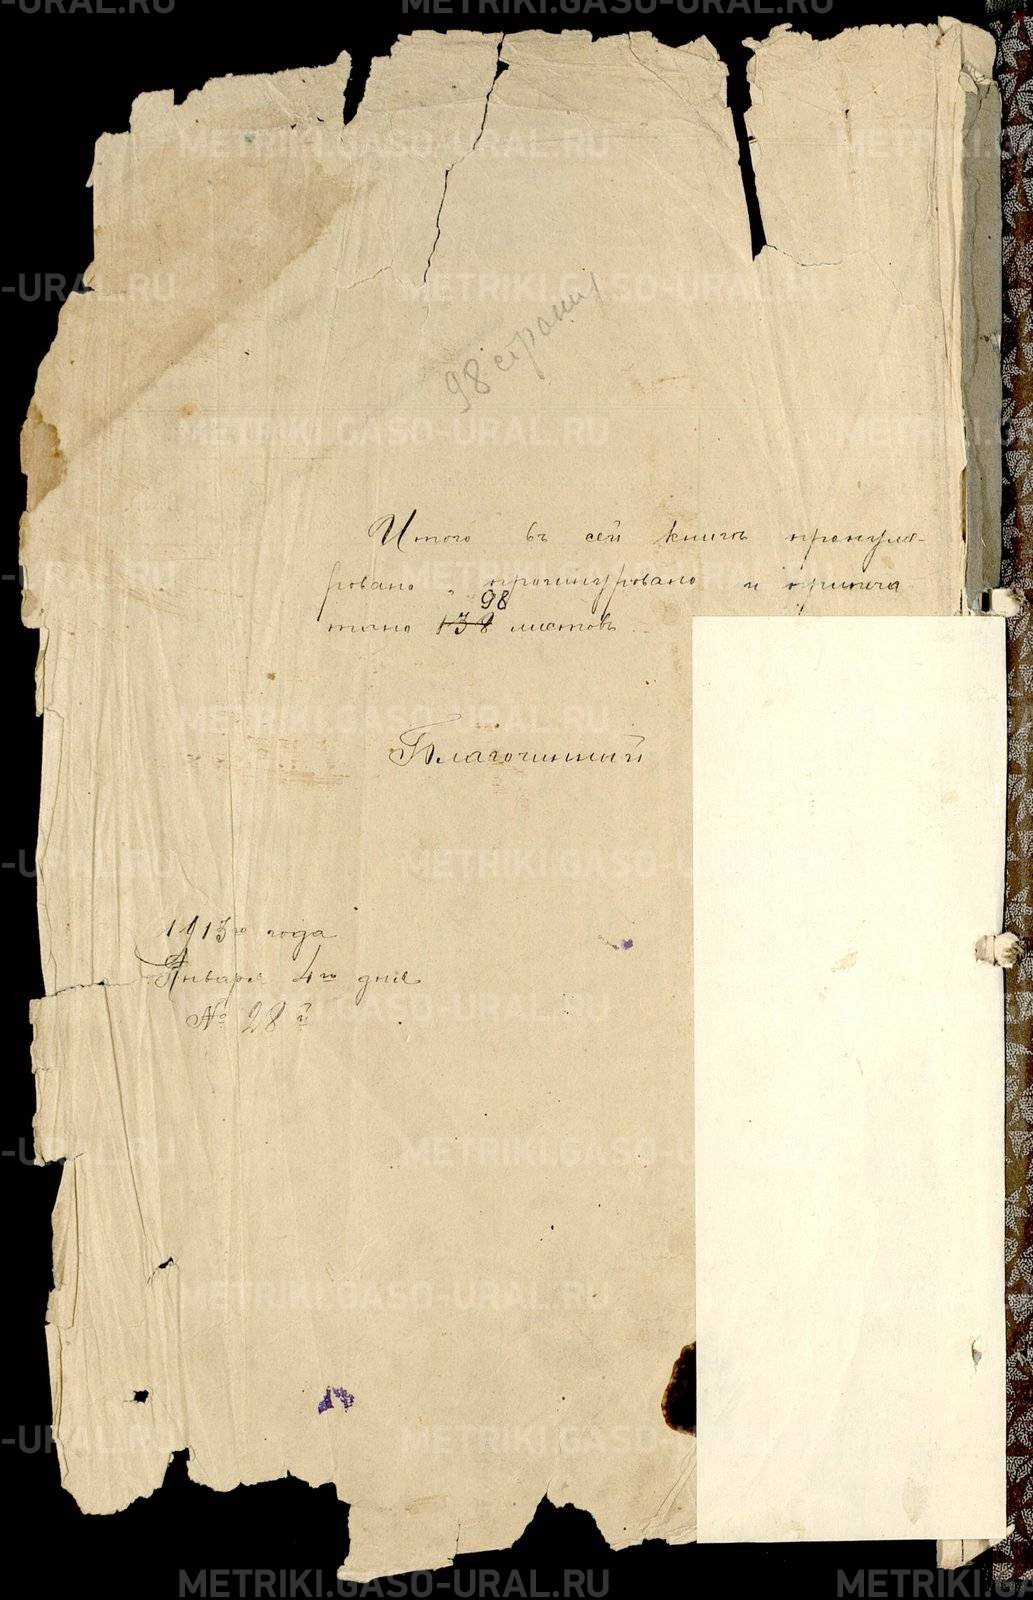 98 страниц
Итого въ сей книгѣ пронуме-
ровано, прошнуровано и припеча
тано 138 98 листовъ
Благочинный
1913го года
Января 4го дня
№ 28й
METRIKI.GASO-URAL.RU